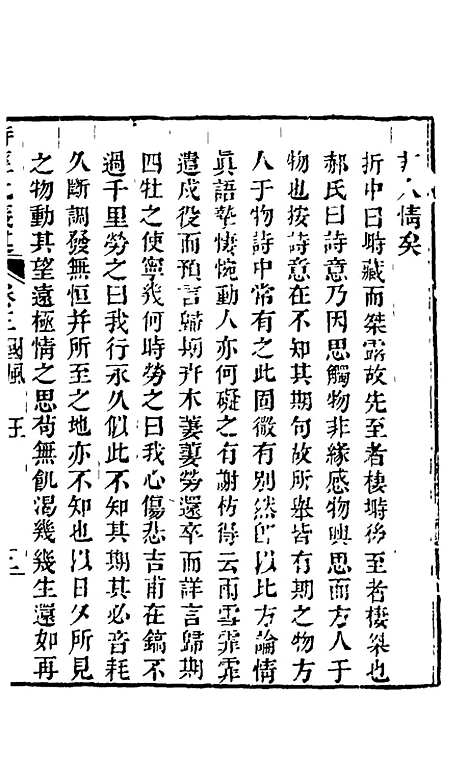 人情矣
折中曰塒藏而桀露故先至者棲塒後至者棲桀也
郝氏曰詩意乃因思觸物非緣感物興思而方人于
物也按詩意在不知其期句故所舉皆有期之物方
人于物詩中常有之此固微有別然卽以比方論情
眞語摯悽惋動人亦何礙之有謝枋得云雨雪霏霏
遣戍役而預言歸期卉木萋萋勞還卒而詳言歸期
四牡之使寧幾何時勞之曰我心傷悲吉甫在鎬不
過千里勞之曰我行永久似此不知其期其必音耗
久斷調發無恒并所至之地亦不知也以日夕所見
之物動其望遠極情之思苟無飢渴幾幾生還如再
國風 王